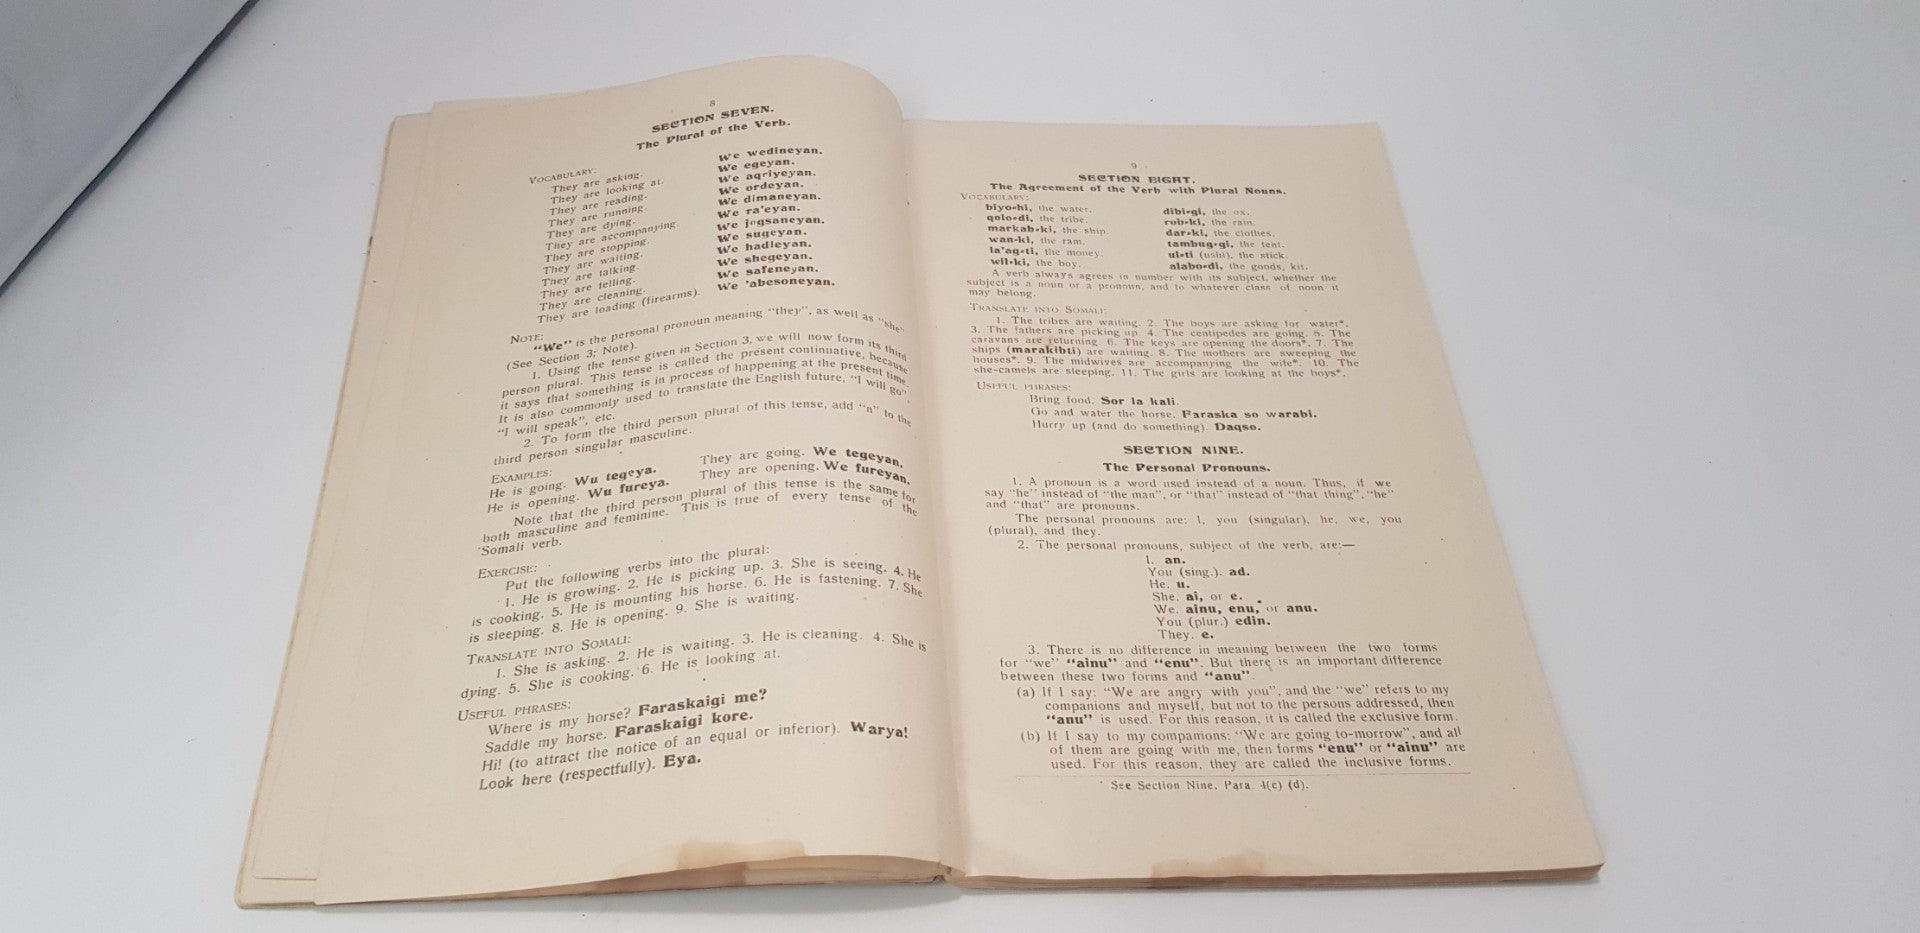 8
SECTION SEVEN.
The Plural of the Verb.
VOCABULARY:
They are asking. We wedineyan.
They are looking at. We egeyan.
They are reading. We aqriyeyan.
They are running. We ordeyan.
They are dying. We dimaneyan.
They are accompanying. We ra'eyan.
They are stopping. We jogsaneyan.
They are waiting. We sugeyan.
They are talking. We hadleyan.
They are telling. We shegeyan.
They are cleaning. We safeneyan.
They are loading (firearms). We 'abesoneyan.
NOTE:
"We" is the personal pronoun meaning "they", as well as "she"
(See Section 3; Note).
1. Using the tense given in Section 3, we will now form its third
person plural. This tense is called the present continuative, because
it says that something is in process of happening at the present time.
It is also commonly used to translate the English future, "I will go"
"I will speak", etc.
2. To form the third person plural of this tense, add "n" to the
third person singular masculine.
EXAMPLES:
He is going. Wu tegeya. They are going. We tegeyan.
He is opening. Wu fureya. They are opening. We fureyan.
Note that the third person plural of this tense is the same for
both masculine and feminine. This is true of every tense of the
Somali verb.
EXERCISE:
Put the following verbs into the plural:
1. He is growing. 2. He is picking up. 3. She is seeing. 4. He
is cooking. 5. He is mounting his horse. 6. He is fastening. 7. She
is sleeping. 8. He is opening. 9. She is waiting.
TRANSLATE INTO SOMALI:
1. She is asking. 2. He is waiting. 3. He is cleaning. 4. She is
dying. 5. She is cooking. 6. He is looking at.
USEFUL PHRASES:
Where is my horse? Faraskaigi me?
Saddle my horse. Faraskaigi kore.
Hi! (to attract the notice of an equal or inferior). Warya!
Look here (respectfully). Eya.
9
SECTION EIGHT.
The Agreement of the Verb with Plural Nouns.
VOCABULARY:
biyo-hi, the water. dibi-gi, the ox.
qolo-di, the tribe. rob-ki, the rain.
markab-ki, the ship. dar-ki, the clothes.
wan-ki, the ram. tambug-gi, the tent.
la'ag-ti, the money. ul-ti (ushi), the stick.
wil-ki, the boy. alabo-di, the goods, kit.
A verb always agrees in number with its subject, whether the
subject is a noun or a pronoun, and to whatever class of noun it
may belong.
TRANSLATE INTO SOMALI:
1. The tribes are waiting. 2. The boys are asking for water*.
3. The fathers are picking up. 4. The centipedes are going. 5. The
caravans are returning. 6. The keys are opening the doors*. 7. The
ships (marakibti) are waiting. 8. The mothers are sweeping the
houses*. 9. The midwives are accompanying the wife*. 10. The
she-camels are sleeping. 11. The girls are looking at the boys*.
USEFUL PHRASES:
Bring food. Sor la kali.
Go and water the horse. Faraska so warabi.
Hurry up (and do something). Daqso.
SECTION NINE.
The Personal Pronouns.
1. A pronoun is a word used instead of a noun. Thus, if we
say "he" instead of "the man", or "that" instead of "that thing", "he"
and "that" are pronouns.
The personal pronouns are: I, you (singular), he, we, you
(plural), and they.
2. The personal pronouns, subject of the verb, are:—
I. an.
You (sing.). ad.
He. u.
She. ai, or e.
We. ainu, enu, or anu.
You (plur.) edin.
They. e.
3. There is no difference in meaning between the two forms
for "we" "ainu" and "enu". But there is an important difference
between these two forms and "anu".
(a) If I say: "We are angry with you", and the "we" refers to my
companions and myself, but not to the persons addressed, then
"anu" is used. For this reason, it is called the exclusive form.
(b) If I say to my companions: "We are going to-morrow", and all
of them are going with me, then forms "enu" or "ainu" are
used. For this reason, they are called the inclusive forms.
* See Section Nine. Para. 4(c) (d).